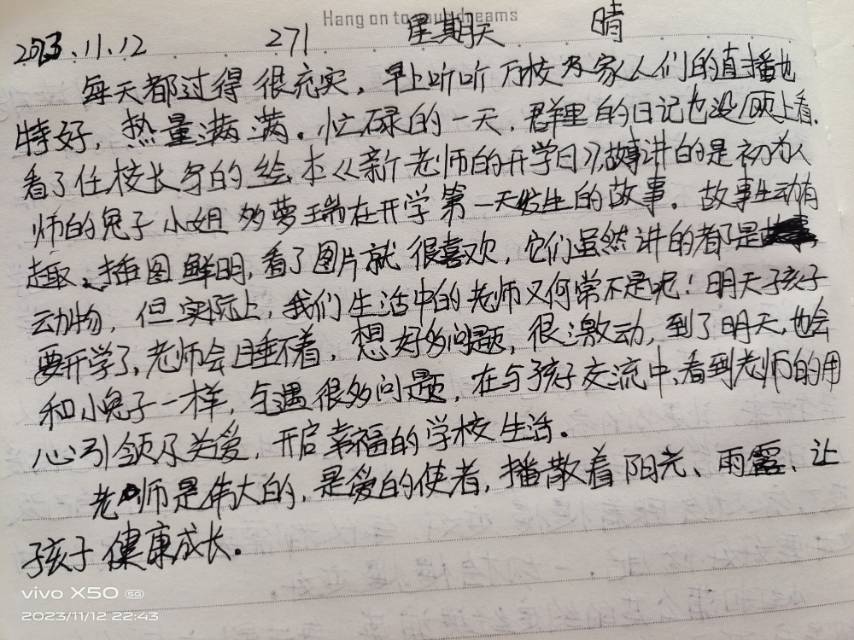 Hang on to your dreams
2023.11.12 271 星期天 晴
每天都过得很充实，早上听听万校及家人们的直播也
特好，热量满满。忙碌的一天，群里的日记也没顾上看，
看了任校长写的绘本《新老师的开学日》，故事讲的是初为人
师的兔子小姐多萝瑞在开学第一天发生的故事。故事生动有
趣、插图鲜明，看了图片就很喜欢，它们虽然讲的都是
动物，但实际上，我们生活中的老师又何常不是呢！明天孩子
要开学了，老师会睡不着，想好多问题，很激动，到了明天，也会
和小兔子一样，与遇很多问题，在与孩子交流中，看到老师的用
心引领及关爱，开启幸福的学校生活。
老师是伟大的，是爱的使者，播散着阳光、雨露、让
孩子健康成长。
vivo X50 5G
2023/11/12 22:43